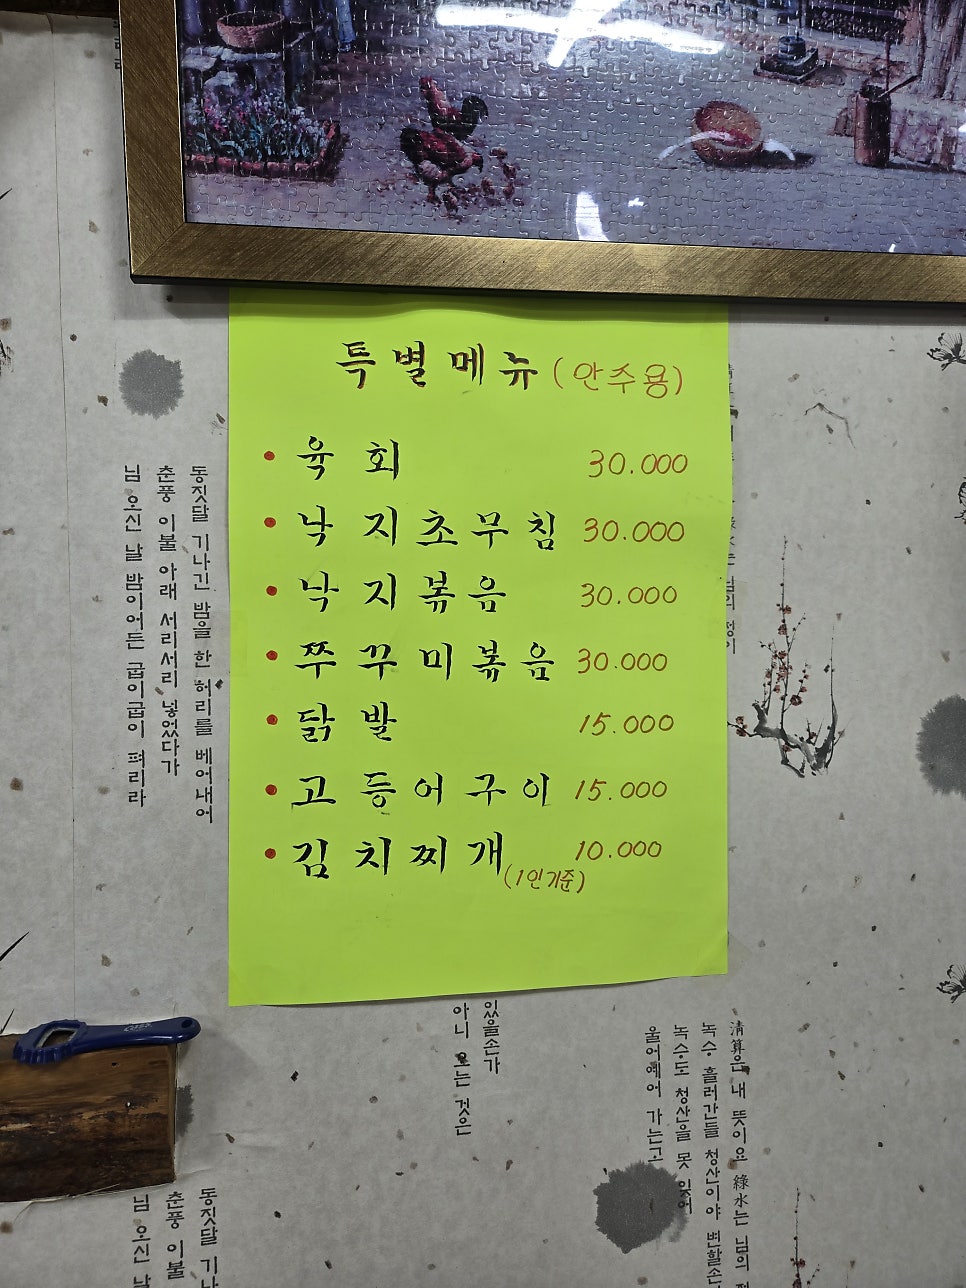 특별메뉴 (안주용)
• 육회 30.000
• 낙지초무침 30.000
• 낙지볶음 30.000
• 쭈꾸미볶음 30.000
• 닭발 15.000
• 고등어구이 15.000
• 김치찌개 (1인기준) 10.000
동짓달 기나긴 밤을 한 허리를 베어내어
춘풍 이불 아래 서리서리 넣었다가
님 오신 날 밤이어든 굽이굽이 펴리라
있을손가
아니 오는 것은
清算은 내 뜻이요 綠水는 님의
녹수 흘러간들 청산이야 변할손
녹수도 청산을 못 잊어
울어예어 가는고
동짓달 기나
춘풍 이불
님 오신 날